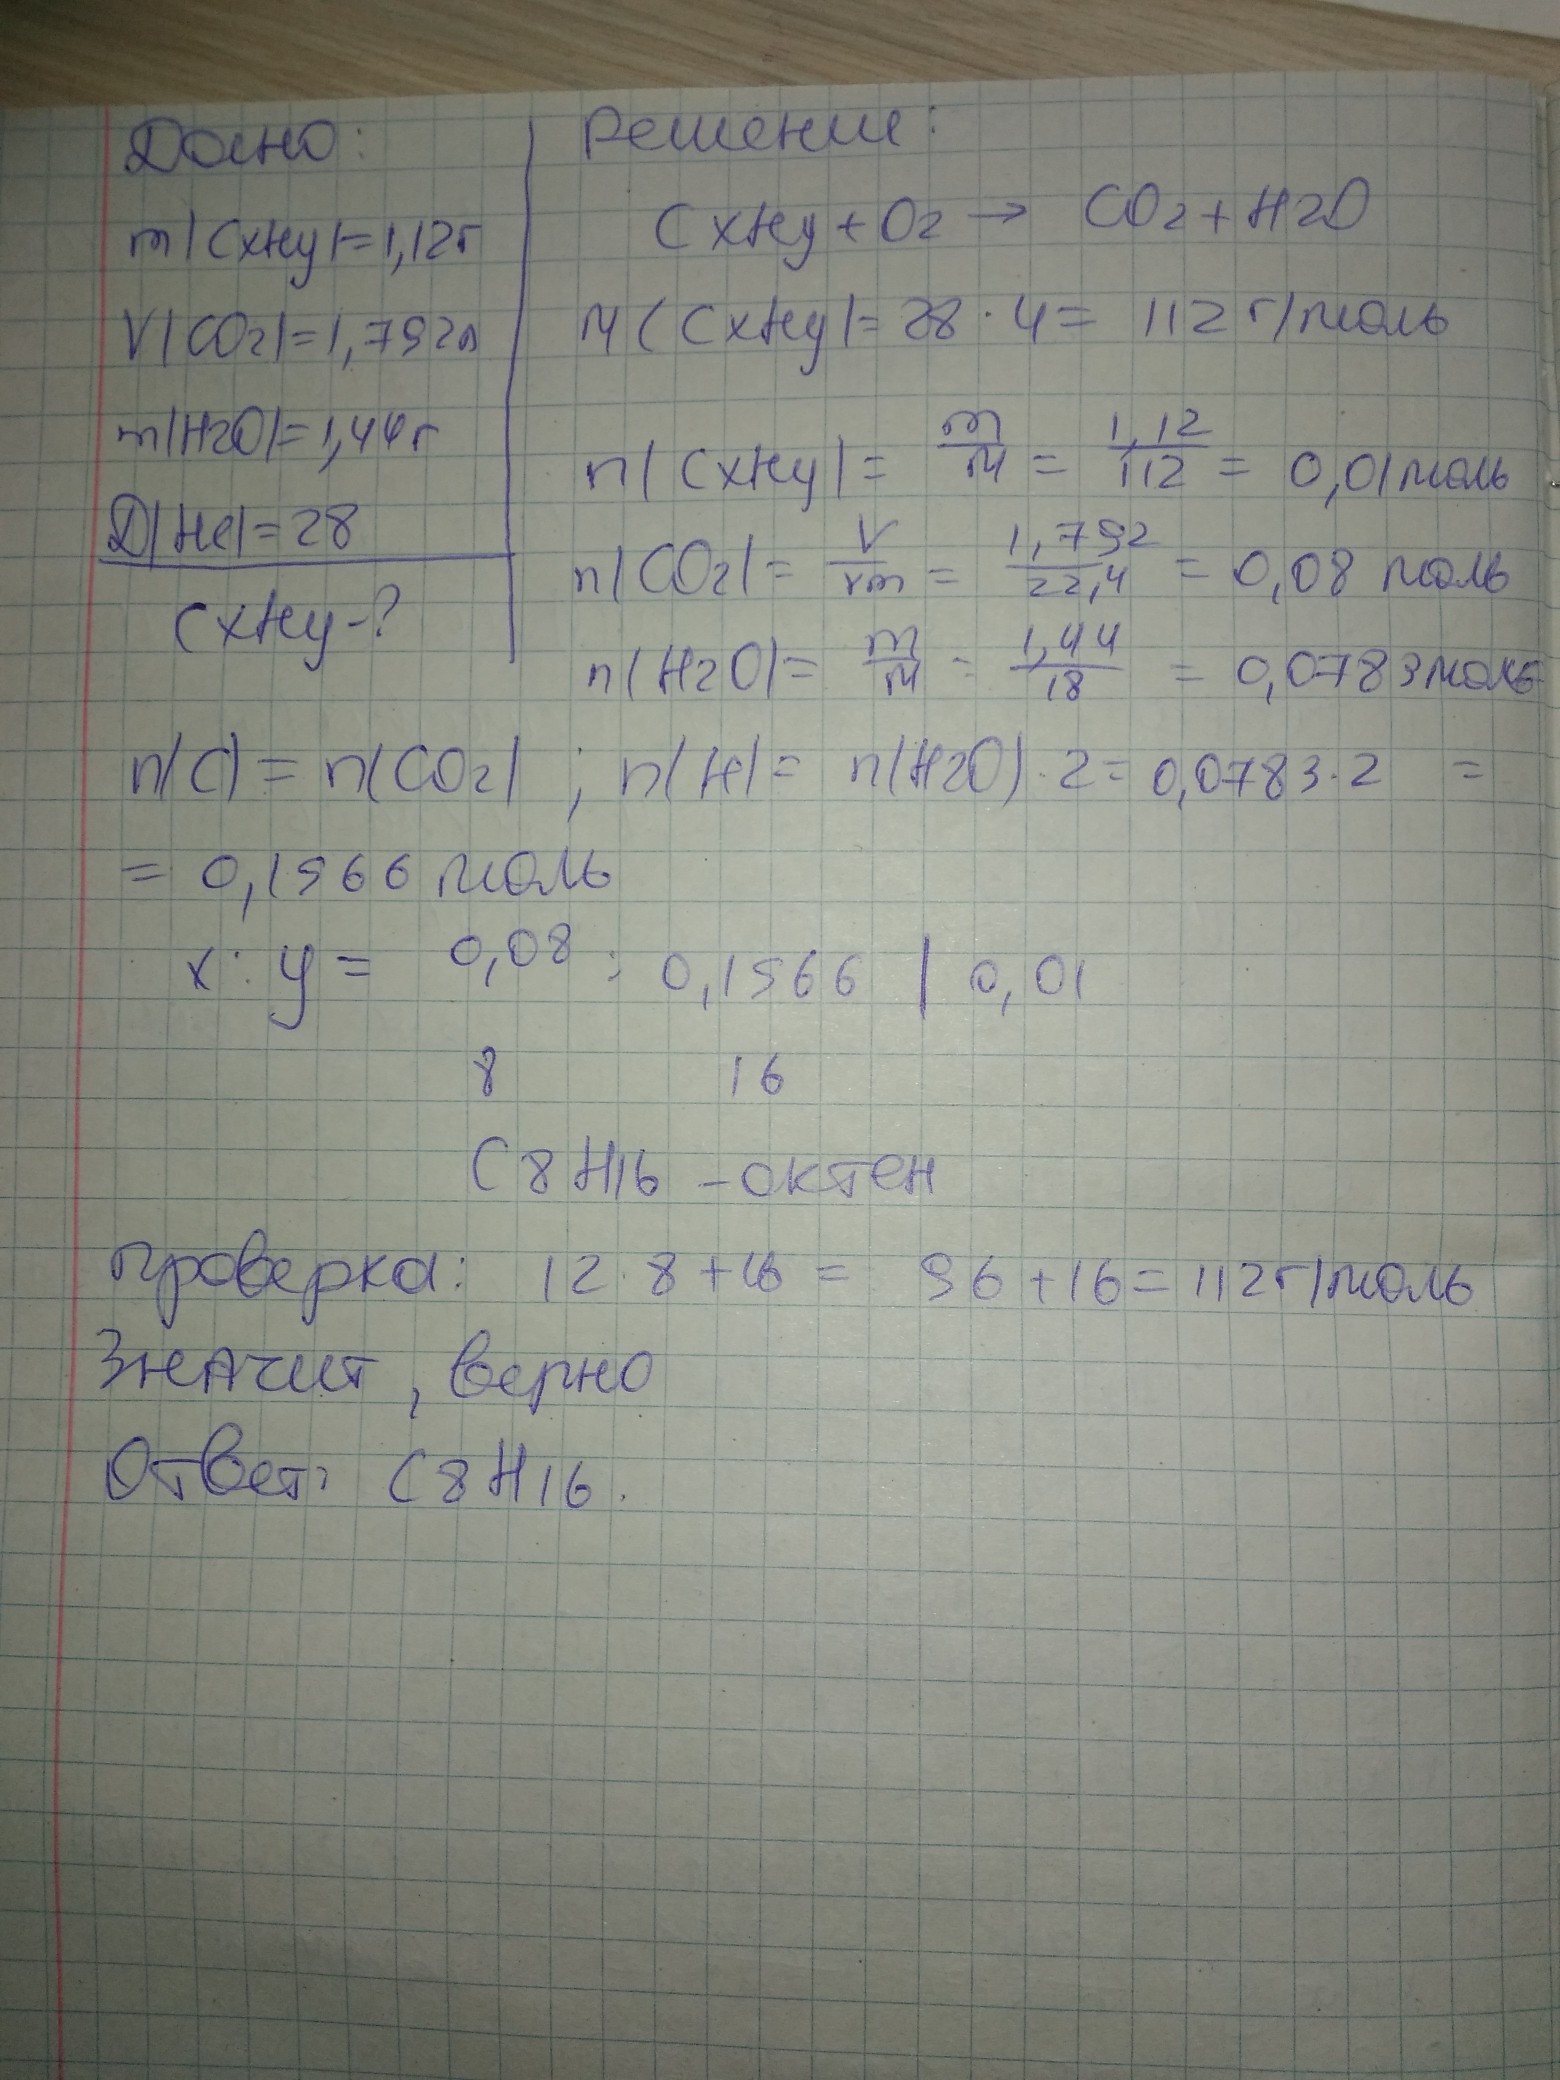 Дано:
m(CxHy)=1,12г
V(CO2)=1,792л
m(H2O)=1,44г
D(He)=28
CxHy-?
Решение:
CxHy + O2 → CO2 + H2O
M(CxHy)=28·4= 112 г/моль
n(CxHy)= m/M = 1,12/112 = 0,01 моль
n(CO2)= V/Vm = 1,792/22,4 = 0,08 моль
n(H2O)= m/M = 1,44/18 = 0,0783 моль
n(C)= n(CO2) ; n(H)= n(H2O)·2= 0,0783·2 =
= 0,1566 моль
x : y = 0,08 : 0,1566 | 0,01
8 16
C8H16 - октен
проверка: 12·8+16 = 96+16= 112г/моль
Значит, верно
Ответ: C8H16.